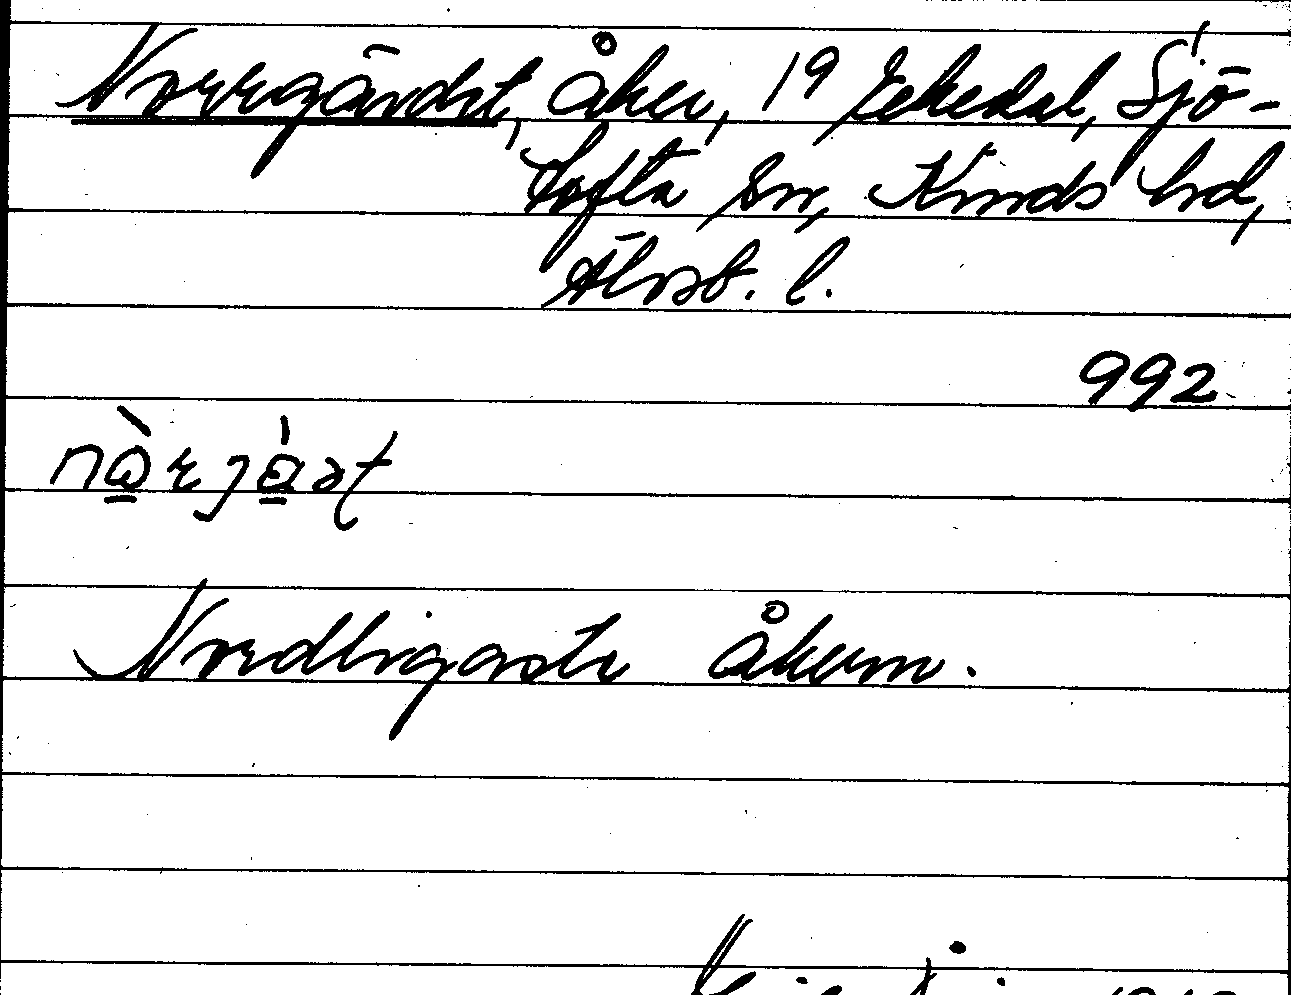 Norrgärdet, åker, 19 Eekedal, Sjö-
tofta sn, Kinds hd,
Älvsb. l.
992
Nordligaste åkern.